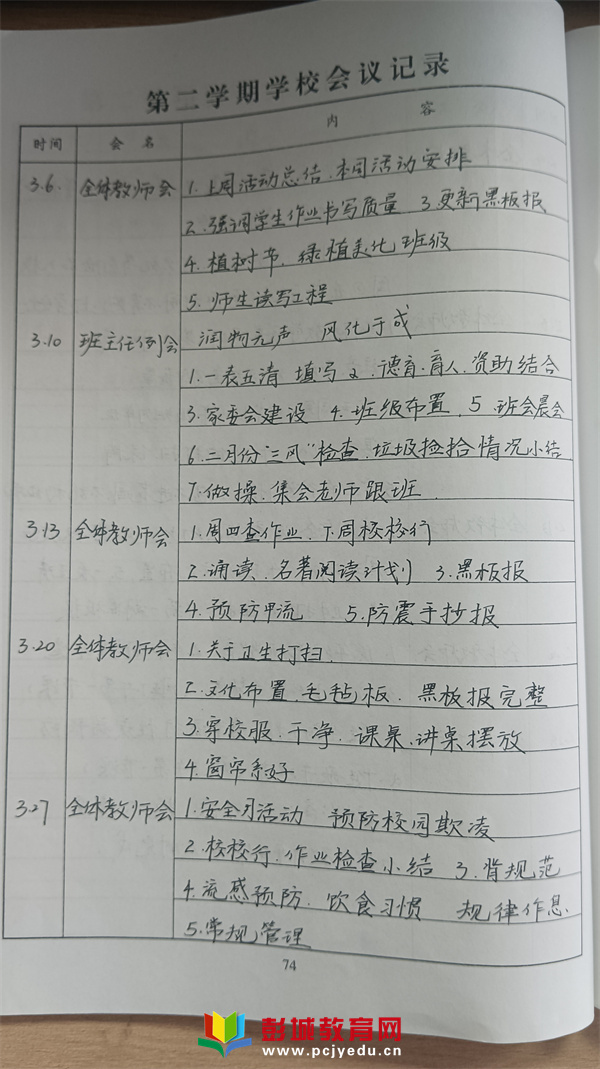 第二学期学校会议记录
时间 会 名 内 容
3.6. 全体教师会 1.上周活动总结、本周活动安排
2.强调学生作业书写质量 3.更新黑板报
4.植树节、绿植美化班级
5.师生读写工程
3.10 班主任例会 润物无声 风化于成
1.一表五清 填写 2.德育、育人、资助结合
3.家委会建设 4.班级布置、5.班会晨会
6.二月份“三风”检查、垃圾捡拾情况小结
7.做操、集会老师跟班.
3.13 全体教师会 1.周四查作业、下周校校行
2.诵读、名著阅读计划 3.黑板报
4.预防甲流 5.防震手抄报
3.20 全体教师会 1.关于卫生打扫.
2.文化布置、毛毡板、黑板报完整
3.穿校服、干净、课桌、讲桌摆放
4.窗帘系好
3.27 全体教师会 1.安全月活动 预防校园欺凌
2.校校行、作业检查小结 3.背规范
4.流感预防、饮食习惯 规律作息.
5.常规管理
74
彭城教育网
www.pcjyedu.cn